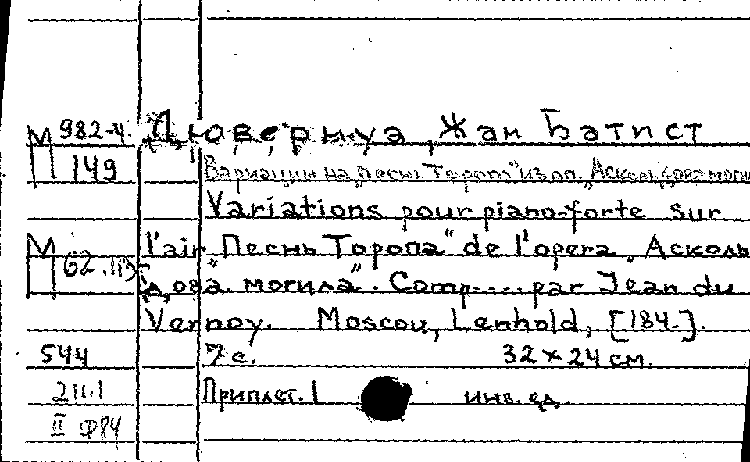 М 982-4. Дювернуа, Жан Батист
149 "Вариации на „песнь Торопа" из оп. „Аскольдова моги
Variations pour piano-forte sur
М 62 l'air „Песнь Торопа" de l'opera „Асколь
дова могила". Comp.... par Jean du
Vernoy. Moscou, Lenhold, [184-].
544 7 с. 32 x 24 см.
Приплет. 1 инв. ед.
II Ф84